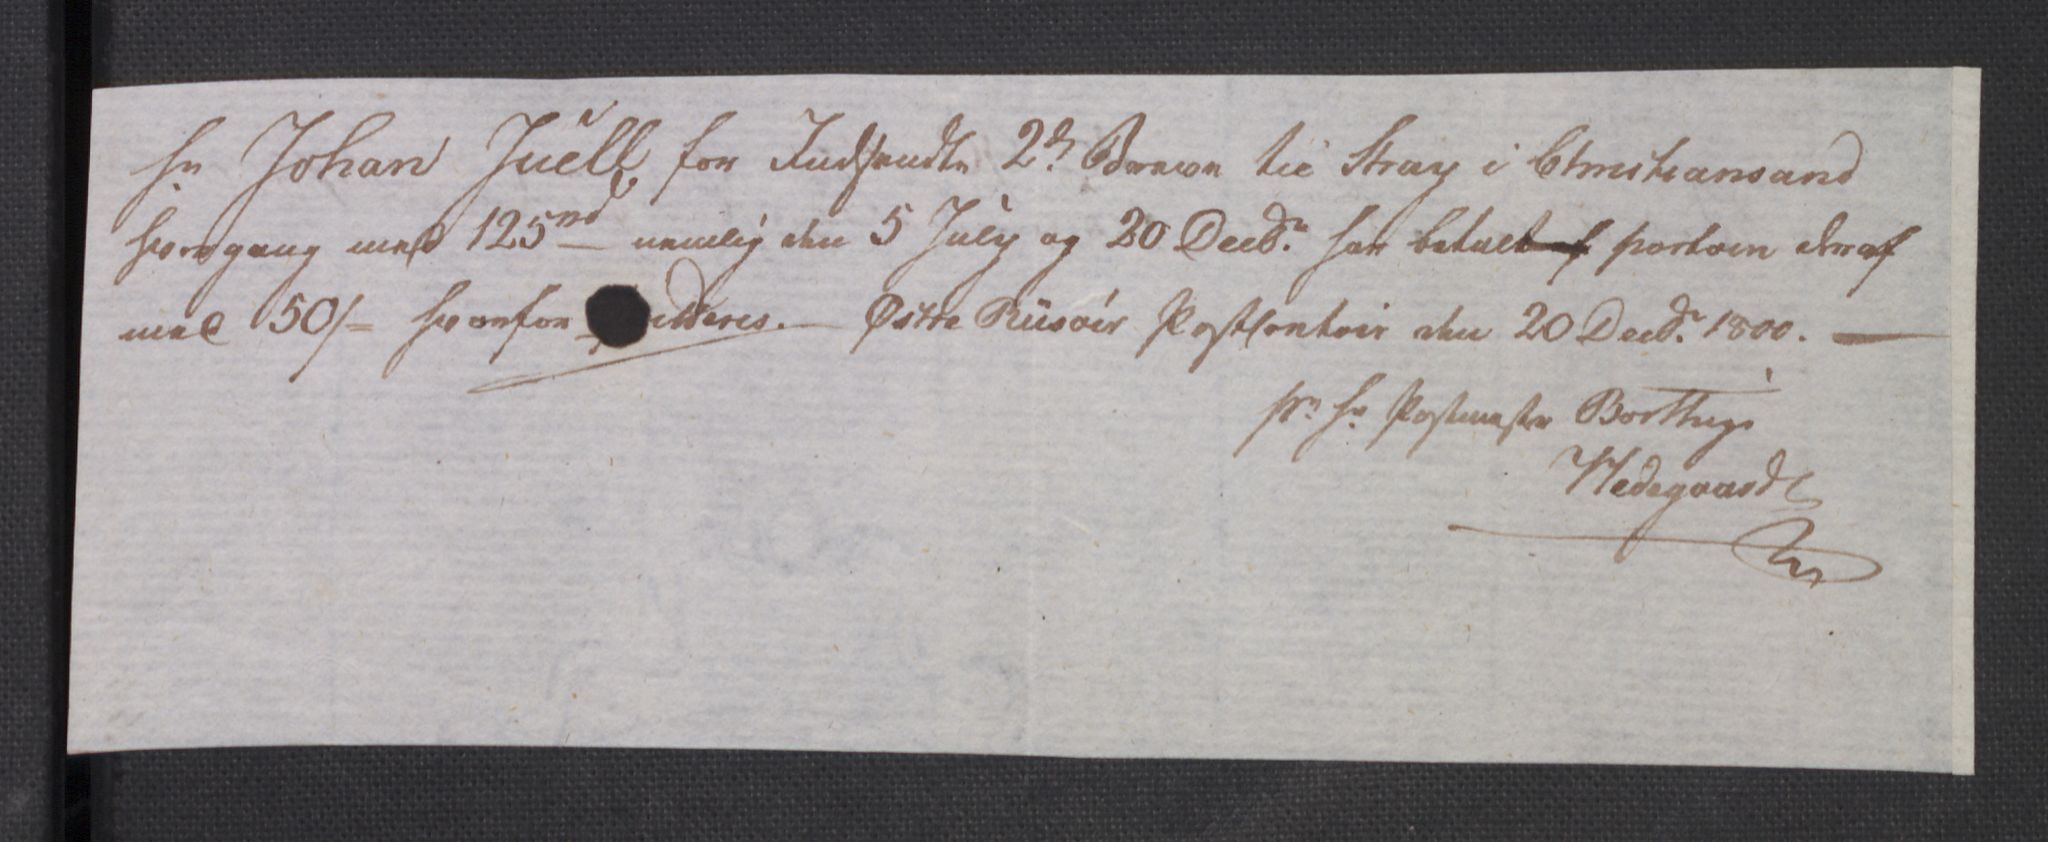 Hr Johan Juell for Indsendte 2de Breve til Stray i Christiansand
hver gang med 125rd nemlig den 5 July og 20 Decbr. har betalt portoen deraf
med 50/- hvorfor qvitteres. — Østre Riisöer Postcontoir den 20 Decbr. 1800. —
pr. Hr Postmester
Hedegaard